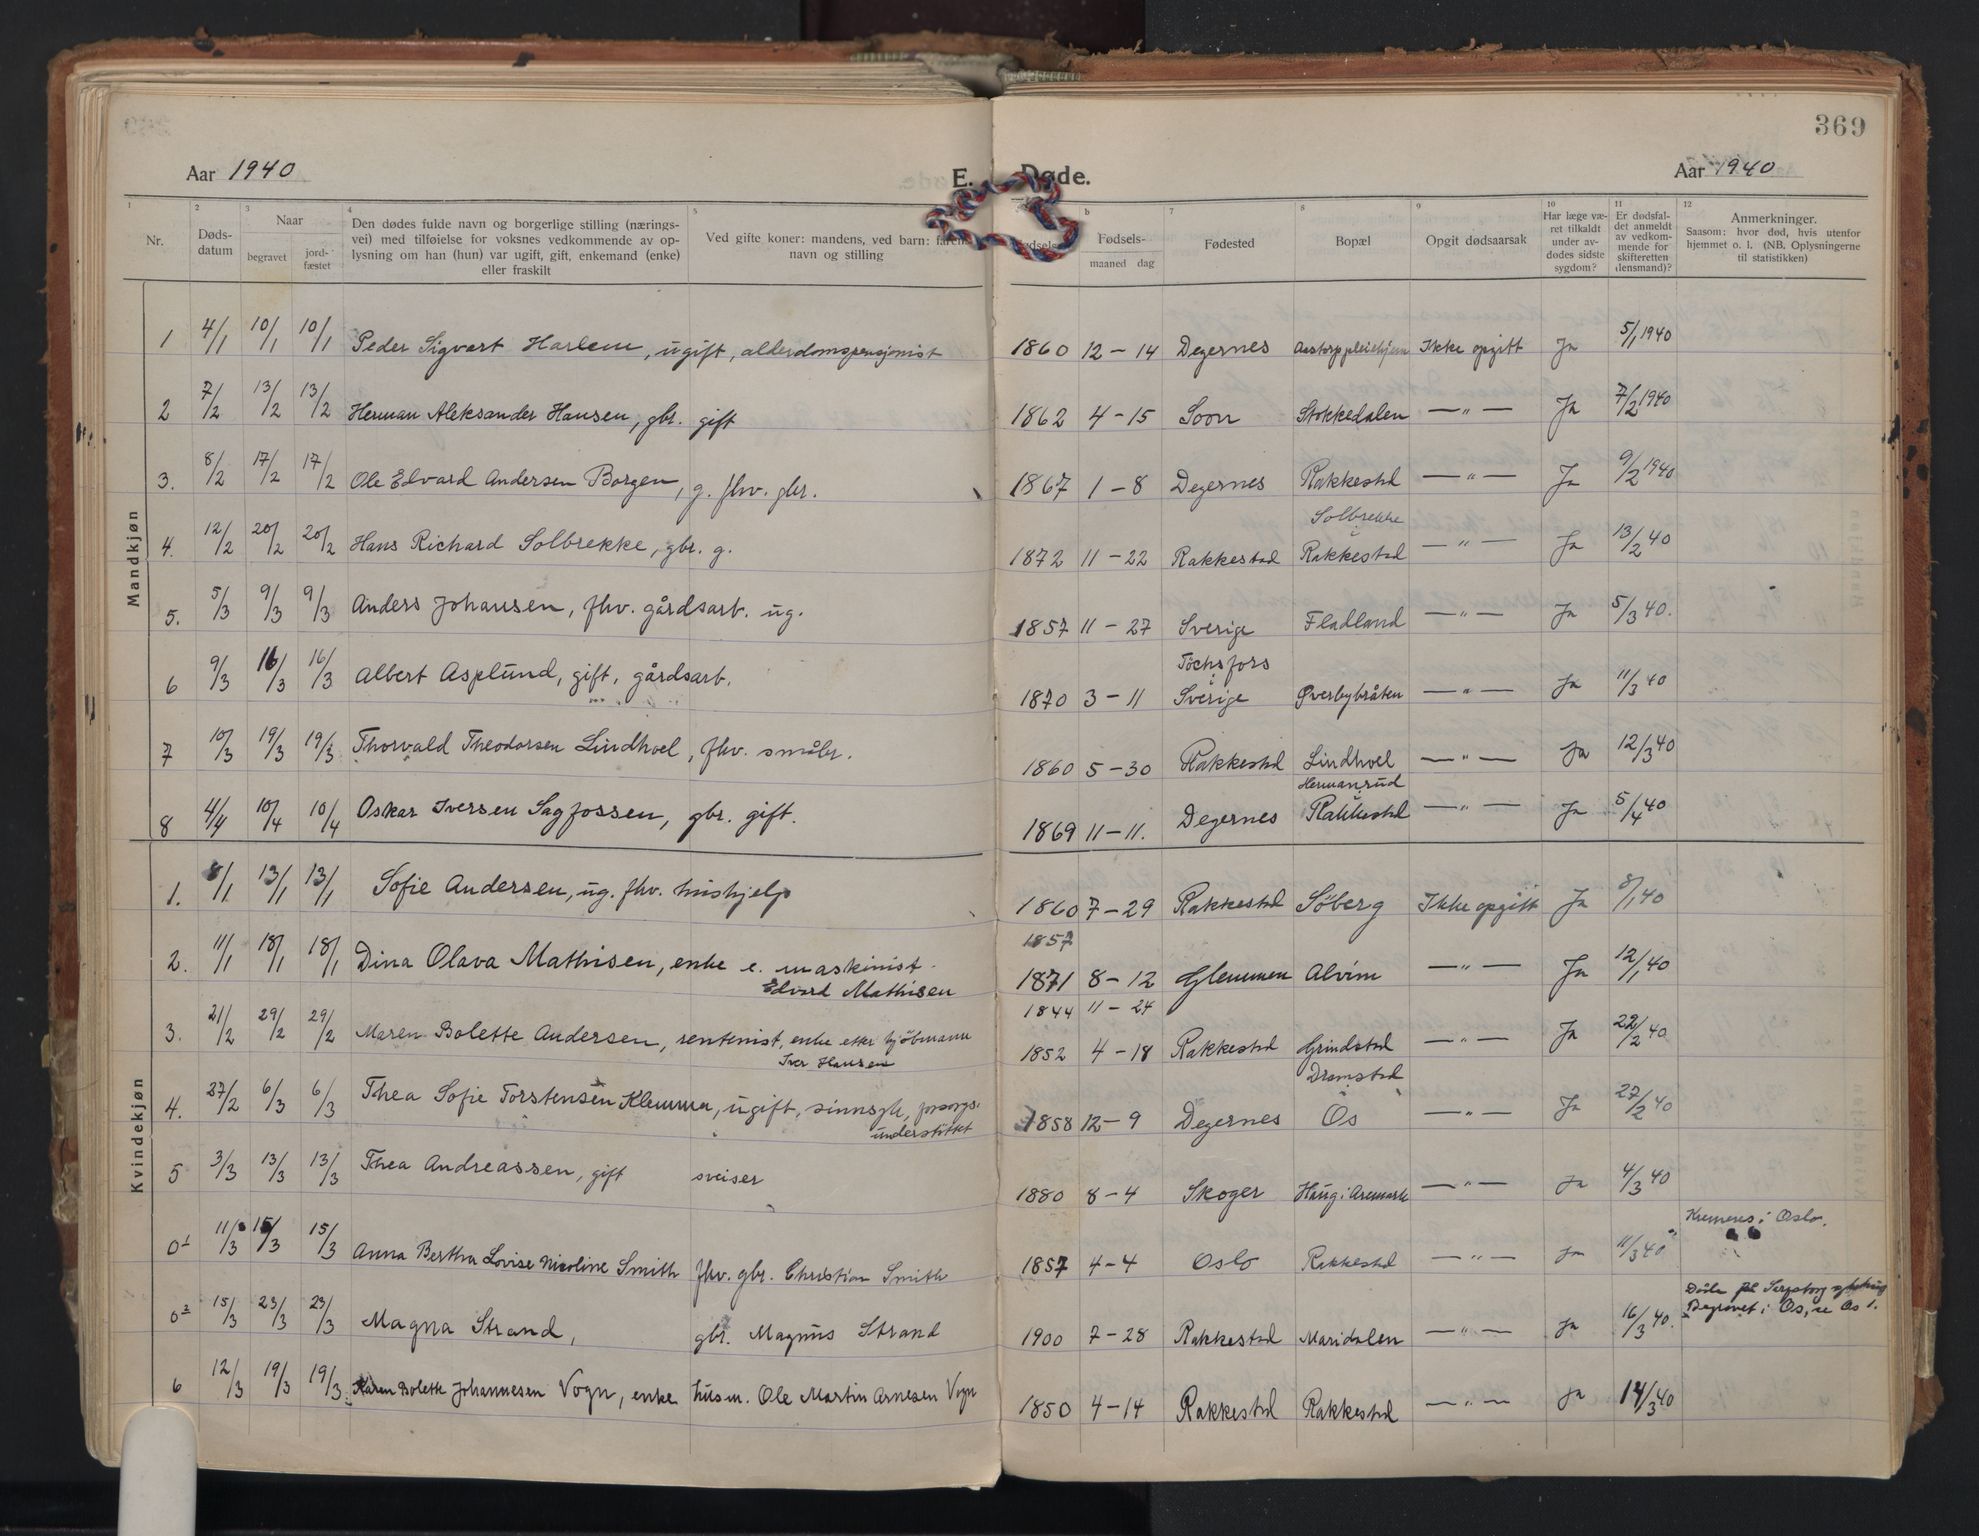 369
Aar 1940
E. Døde.
Aar 1940
1 2 3 4 5 b 7 8 9 10 11 12
Nr.
Døds-
datum
Naar
begravet
jord-
fæstet
Den dødes fulde navn og borgerlige stilling (nærings-
vei) med tilføielse for voksnes vedkommende av op-
lysning om han (hun) var ugift, gift, enkemand (enke)
eller fraskilt
Ved gifte koner: mandens, ved barn: farens
navn og stilling
Fødsels-
maaned dag
Fødested
Bopæl
Opgit dødsaarsak
Har læge væ-
ret tilkaldt
under av-
dødes sidste
sygdom?
Er dødsfal-
det anmeldt
av vedkom-
mende for
skifteretten
(lensmand)?
Anmerkninger.
Saasom: hvor død, hvis utenfor
hjemmet o. l. (NB. Oplysningerne
til statistikken)
Mandkjøn
1 4/1 10/1 10/1 Peder Sigvart Harlem, ugift, alderdomspensjonist 1860 12-14 Degernes Aastorp pleiehjem Ikke opgitt Ja 5/1 1940
2 7/2 13/2 13/2 Herman Aleksander Hansen, gbr. gift 1862 4-15 Soon Stokkedalen —"— Ja 7/2 1940
3. 8/2 17/2 17/2 Ole Edvard Andersen Borgen, g. fhv. gbr. 1867 1-8 Degernes Rakkestad —"— Ja 9/2 1940
Solbrekke
4. 12/2 20/2 20/2 Hans Richard Solbrekke, gbr. g. 1872 11-22 Rakkestad Rakkestad —"— Ja 13/2 40
5. 5/3 9/3 9/3 Anders Johansen, fhv. gårdsarb. ug. 1857 11-27 Sverige Fladland —"— Ja 5/3 40.
Töchsfors
6 9/3 16/3 16/3 Albert Asplund, gift, gårdsarb. 1870 3-11 Sverige Øverbybråten —"— Ja 11/3 40
7 10/3 19/3 19/3 Thorvald Theodorsen Lindhoel, fhv. småbr. 1860 5-30 Rakkestad Lindhoel —"— Ja 12/3 40
Hermansrud
8 4/4 10/4 10/4 Oskar Iversen Sagfossen, gbr. gift. 1869 11-11. Degernes Rakkestad —"— Ja 5/4 40
Kvindekjøn
1. 8/1 13/1 13/1 Sofie Andersen, ug. fhv. hushjelp 1860 7-29 Rakkestad Søberg Ikke opgitt Ja 8/1 40
1857
2. 11/1 18/1 18/1 Dina Olava Mathisen, enke e. maskinist 1871 8-12 Glemmen Alvim —"— Ja 12/1 40
Edvard Mathisen
1844 11-24
3. 21/2 29/2 29/2 Maren Bolette Andersen, rentenist, enke etter kjøbmann 1852 4-18 Rakkestad Grindstad —"— Ja 22/2 40
Iver Hansen
Dramstad
4. 27/2 6/3 6/3 Thea Sofie Torstensen Klemma, ugift, sinnsyk, forsorgs- 1858 12-9 Degernes Os —"— Ja 27/2 40
understøttet
5 3/3 13/3 13/3 Thea Andreassen, gift sveiser 1880 8-4 Skoger Haug i Aremark —"— Ja 4/3 40
Kremeres i Oslo.
0¹ 11/3 15/3 15/3 Anna Bertha Lovise Nicoline Smith fhv. gbr. Christian Smith 1857 4-4 Oslo Rakkestad —"— Ja 11/3 40
Døde på Sarpsborg sykehus
Begravet i Os, se Os 1.
0² 15/3 23/3 23/3 Magna Strand, gbr. Magnus Strand 1900 7-28 Rakkestad Maridalen —"— Ja 16/3 40.
6 12/3 19/3 19/3 Karen Bolette Johannesen Vogn, enke husm. Ole Martin Arnesen Vogn 1850 4-14 Rakkestad Rakkestad —"— Ja 14/3 40